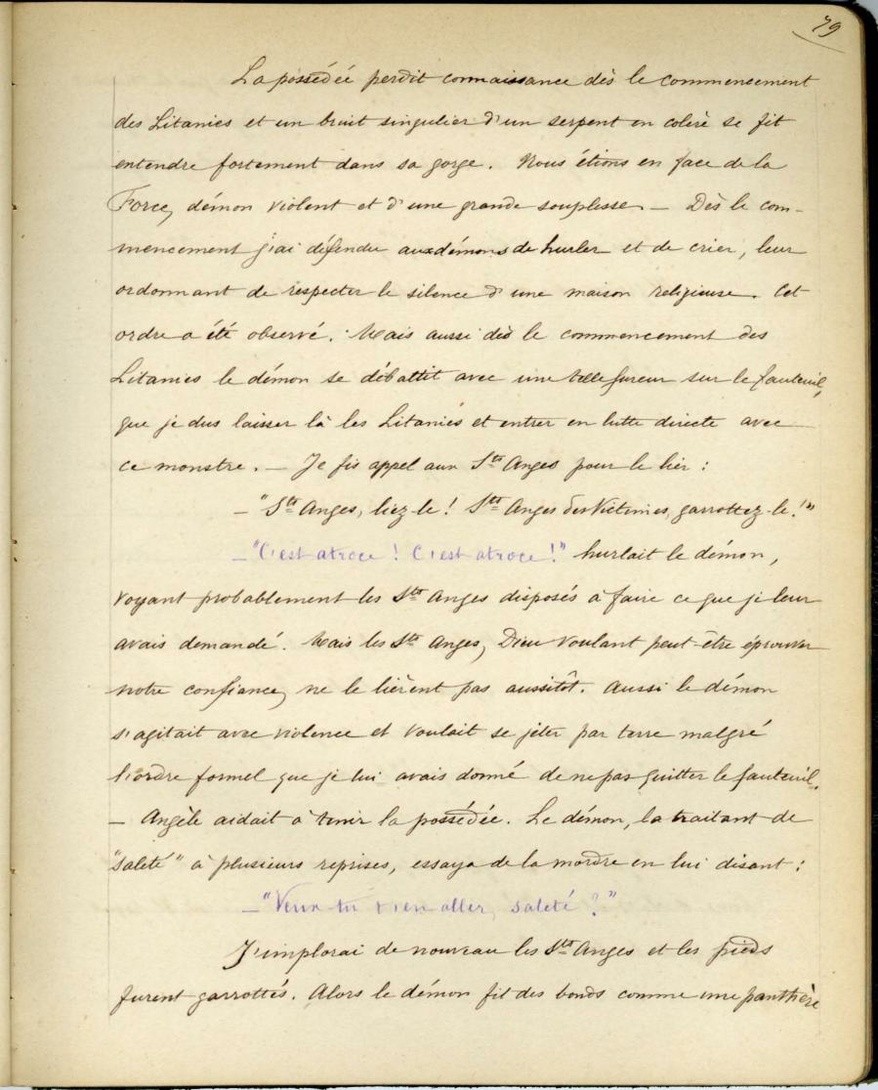 79
La possédée perdit connaissance dès le commencement
des Litanies et un bruit singulier d'un serpent en colère se fit
entendre fortement dans sa gorge. Nous étions en face de la
Force, démon violent et d'une grande souplesse. — Dès le com-
mencement j'ai défendu aux démons de hurler et de crier, leur
ordonnant de respecter le silence d'une maison religieuse. Cet
ordre a été observé. Mais aussi dès le commencement des
Litanies le démon se débattit avec une telle fureur sur le fauteuil,
que je dus laisser là les Litanies et entrer en lutte directe avec
ce monstre. — Je fis appel aux Sts Anges pour le lier :
— "Sts Anges, liez-le ! Sts Anges des Victimes, garrottez-le !"
— "C'est atroce ! C'est atroce !" hurlait le démon,
voyant probablement les Sts Anges disposés à faire ce que je leur
avais demandé. Mais les Sts Anges, Dieu voulant peut-être éprouver
notre confiance, ne le lièrent pas aussitôt. Aussi le démon
s'agitait avec violence et voulait se jeter par terre malgré
l'ordre formel que je lui avais donné de ne pas quitter le fauteuil.
— Angèle aidait à tenir la possédée. Le démon, la traitant de
"saleté" à plusieurs reprises, essaya de la mordre en lui disant :
— "Veux-tu t'en aller, saleté ?"
J'implorai de nouveau les Sts Anges et les pieds
furent garrottés. Alors le démon fit des bonds comme une panthère